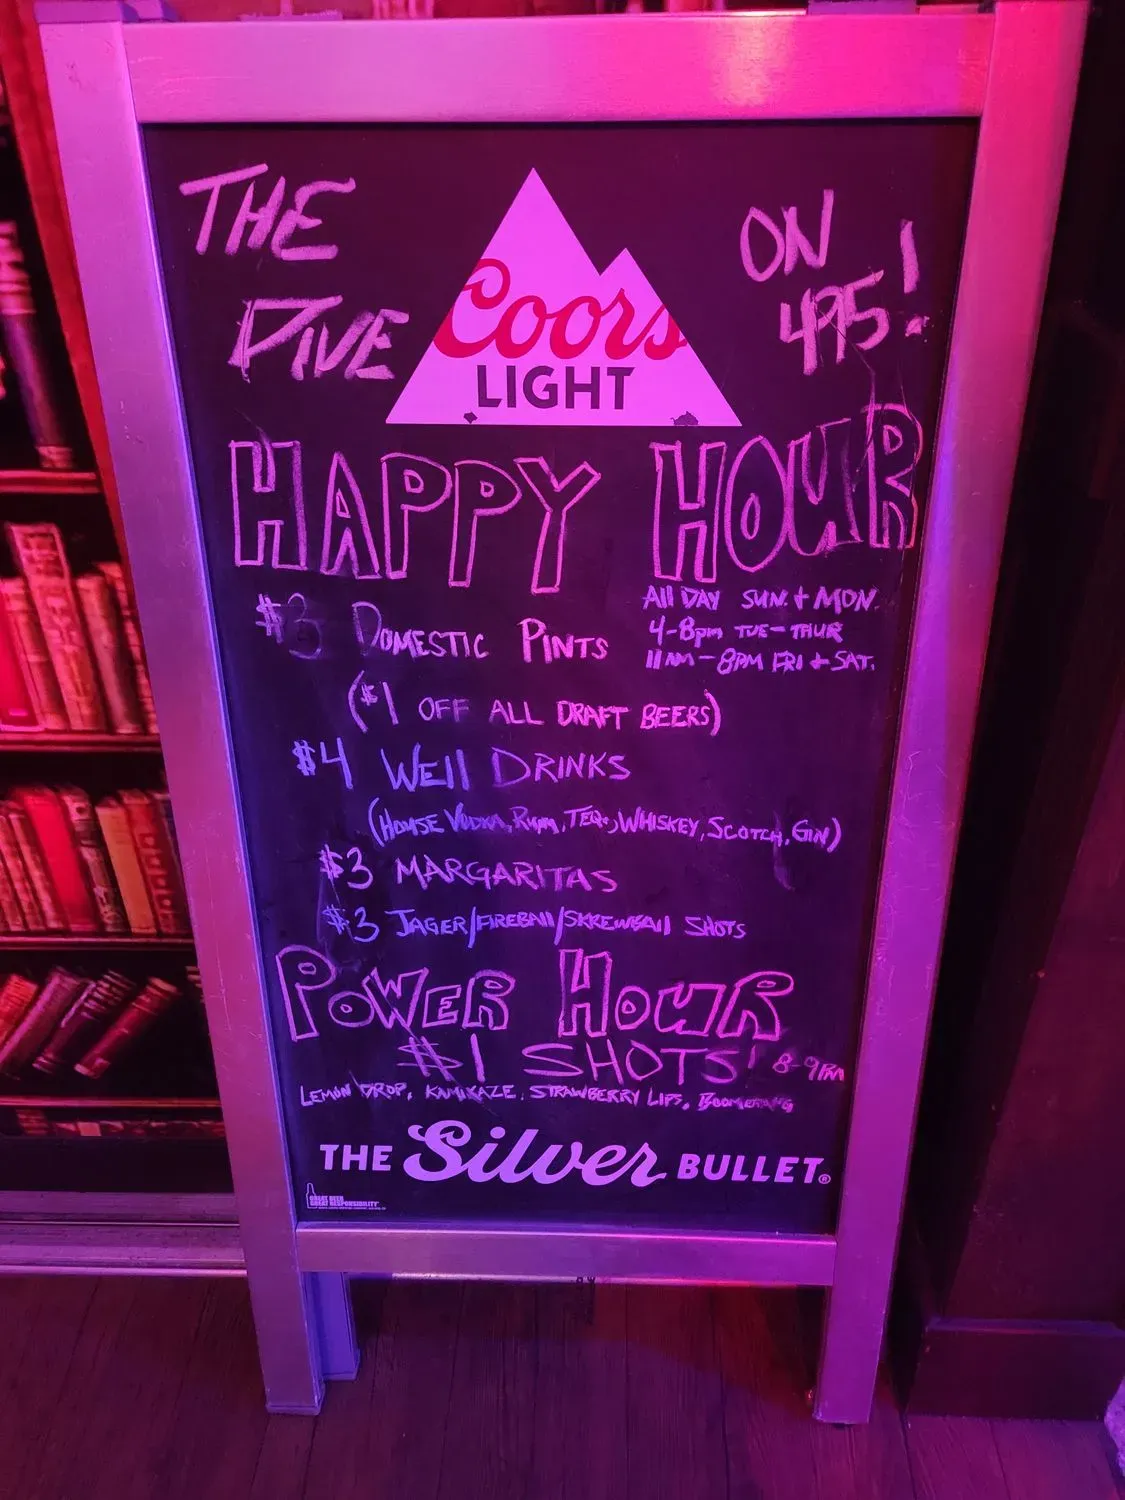 THE
DIVE
Coors
LIGHT
ON
495!
HAPPY HOUR
All DAY SUN. + MON.
4-8pm TUE-THUR
11AM-8PM FRI + SAT.
$3 DOMESTIC PINTS
($1 OFF ALL DRAFT BEERS)
$4 WEll DRINKS
(HOUSE VODKA, RUM, TEQ., WHISKEY, SCOTCH, GIN)
$3 MARGARITAS
$3 JAGER/FIREBAll/SKREWBAll SHOTS
POWER HOUR
$1 SHOTS! 8-9PM
LEMON DROP, KAMIKAZE, STRAWBERRY LIPS, BOOMERANG
THE Silver BULLET®
GREAT BEER
GREAT RESPONSIBILITY